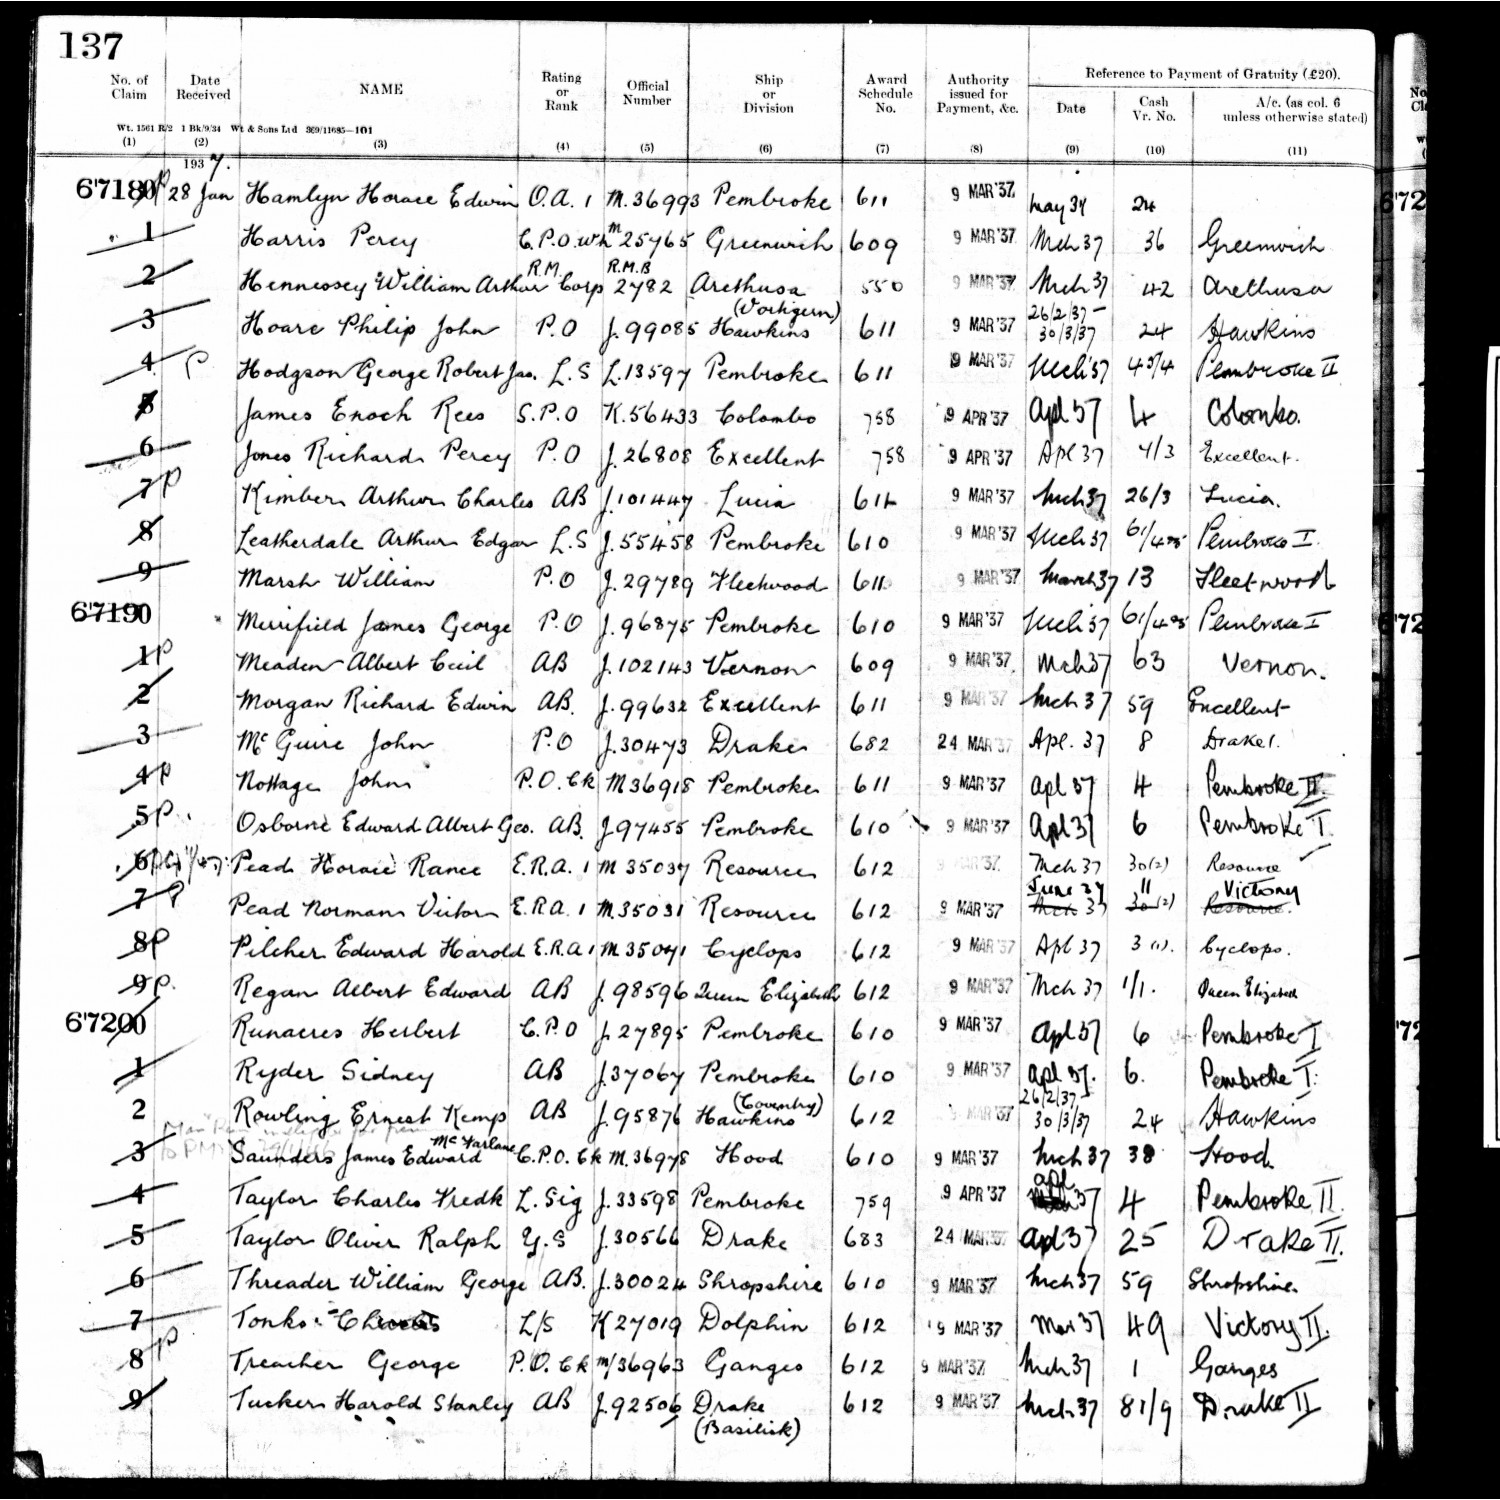 137
No. of Claim Date Received NAME Rating or Rank Official Number Ship or Division Award Schedule No. Authority issued for Payment, &c. Reference to Payment of Gratuity (£20).
Date Cash Vr. No. A/c. (as col. 6 unless otherwise stated)
Wt. 1561 R/2 1 Bk/9/34 Wt & Sons Ltd 369/11685—101
(1) (2) (3) (4) (5) (6) (7) (8) (9) (10) (11)
1937.
67180 P 28 Jan Hamlyn Horace Edwin O.A. 1 M.36993 Pembroke 611 9 MAR '37 May 37 24
1 Harris Percy C.P.O. Wr M 25765 Greenwich 609 9 MAR '37 Mch 37 36 Greenwich
2 Hennessey William Arthur R.M. Corp R.M.B 2782 Arethusa 550 9 MAR '37 Mch 37 42 Arethusa
3 Hoare Philip John P.O J.99085 (Vortigern) Hawkins 611 9 MAR '37 26/2/37 - 30/3/37 24 Hawkins
4 P Hodgson George Robert Jas. L.S L.13597 Pembroke 611 9 MAR '37 Mch 37 45/4 Pembroke II
5 James Enoch Rees S.P.O K.56433 Colombo 758 9 APR '37 Apl 37 4 Colombo.
6 Jones Richard Percy P.O J.26808 Excellent 758 9 APR '37 Apl 37 4/3 Excellent.
7 P Kimber Arthur Charles AB J.101447 Lucia 611 9 MAR '37 Mch 37 26/3 Lucia.
8 Leatherdale Arthur Edgar L.S J.55458 Pembroke 610 9 MAR '37 Mch 37 61/ Pembroke I.
9 Marsh William P.O J.29789 Fleetwood 611 9 MAR '37 March 37 13 Fleetwood
67190 Merrifield James George P.O J.96875 Pembroke 610 9 MAR '37 Mch 37 61/ Pembroke I
1 P Meaden Albert Cecil AB J.102143 Vernon 609 9 MAR '37 Mch 37 63 Vernon.
2 Morgan Richard Edwin AB. J.99632 Excellent 611 9 MAR '37 Mch 37 59 Excellent
3 Mc Guire John P.O J.30473 Drake 682 24 MAR '37 Apl. 37 8 Drake I.
4 P Nottage John P.O. Ck M36918 Pembroke 611 9 MAR '37 Apl 37 4 Pembroke II.
5 P. Osborne Edward Albert Geo. AB. J.97455 Pembroke 610 9 MAR '37 Apl 37 6 Pembroke I.
6 Pead Horace Rance E.R.A. 1 M 35037 Resource 612 9 MAR '37 Mch 37 30 (2) Resource
7 P Pead Norman Victor E.R.A. 1 M.35031 Resource 612 9 MAR '37 June 37 Mch 37 11 30 (2) Victory Resource.
8 P Pilcher Edward Harold E.R.A 1 M 35041 Cyclops 612 9 MAR '37 Apl 37 3 (1). Cyclops.
9 P. Regan Albert Edward AB J.98596 Queen Elizabeth 612 9 MAR '37 Mch 37 1/1. Queen Elizabeth
67200 Runacres Herbert C.P.O J.27895 Pembroke 610 9 MAR '37 Apl 37 6 Pembroke I
1 Ryder Sidney AB J37067 Pembroke 610 9 MAR '37 Apl 37. 6. Pembroke I.
2 Rowling Ernest Kemp AB J.95876 (Coventry) Hawkins 612 9 MAR '37 26/2/37 - 30/3/37 24 Hawkins
3 Saunders James Edward McFarlane C.P.O. Ck M.36978 Hood 610 9 MAR '37 Mch 37 38 Hood
4 Taylor Charles Fredk L. Sig J.33598 Pembroke 759 9 APR '37 Apl 37 4 Pembroke II.
5 Taylor Oliver Ralph Y.S J.30566 Drake 683 24 MAR '37 Apl 37 25 Drake II.
6 Threader William George AB. J.30024 Shropshire 610 9 MAR '37 Mch 37 59 Shropshire.
7 Tonks Charles L/S K 27019 Dolphin 612 9 MAR '37 Mar 37 49 Victory II.
8 P Treacher George P.O. Ck M/36963 Ganges 612 9 MAR '37 Mch 37 1 Ganges
9 Tucker Harold Stanley AB J.92506 Drake (Basilisk) 612 9 MAR '37 Mch 37 81/9 Drake II